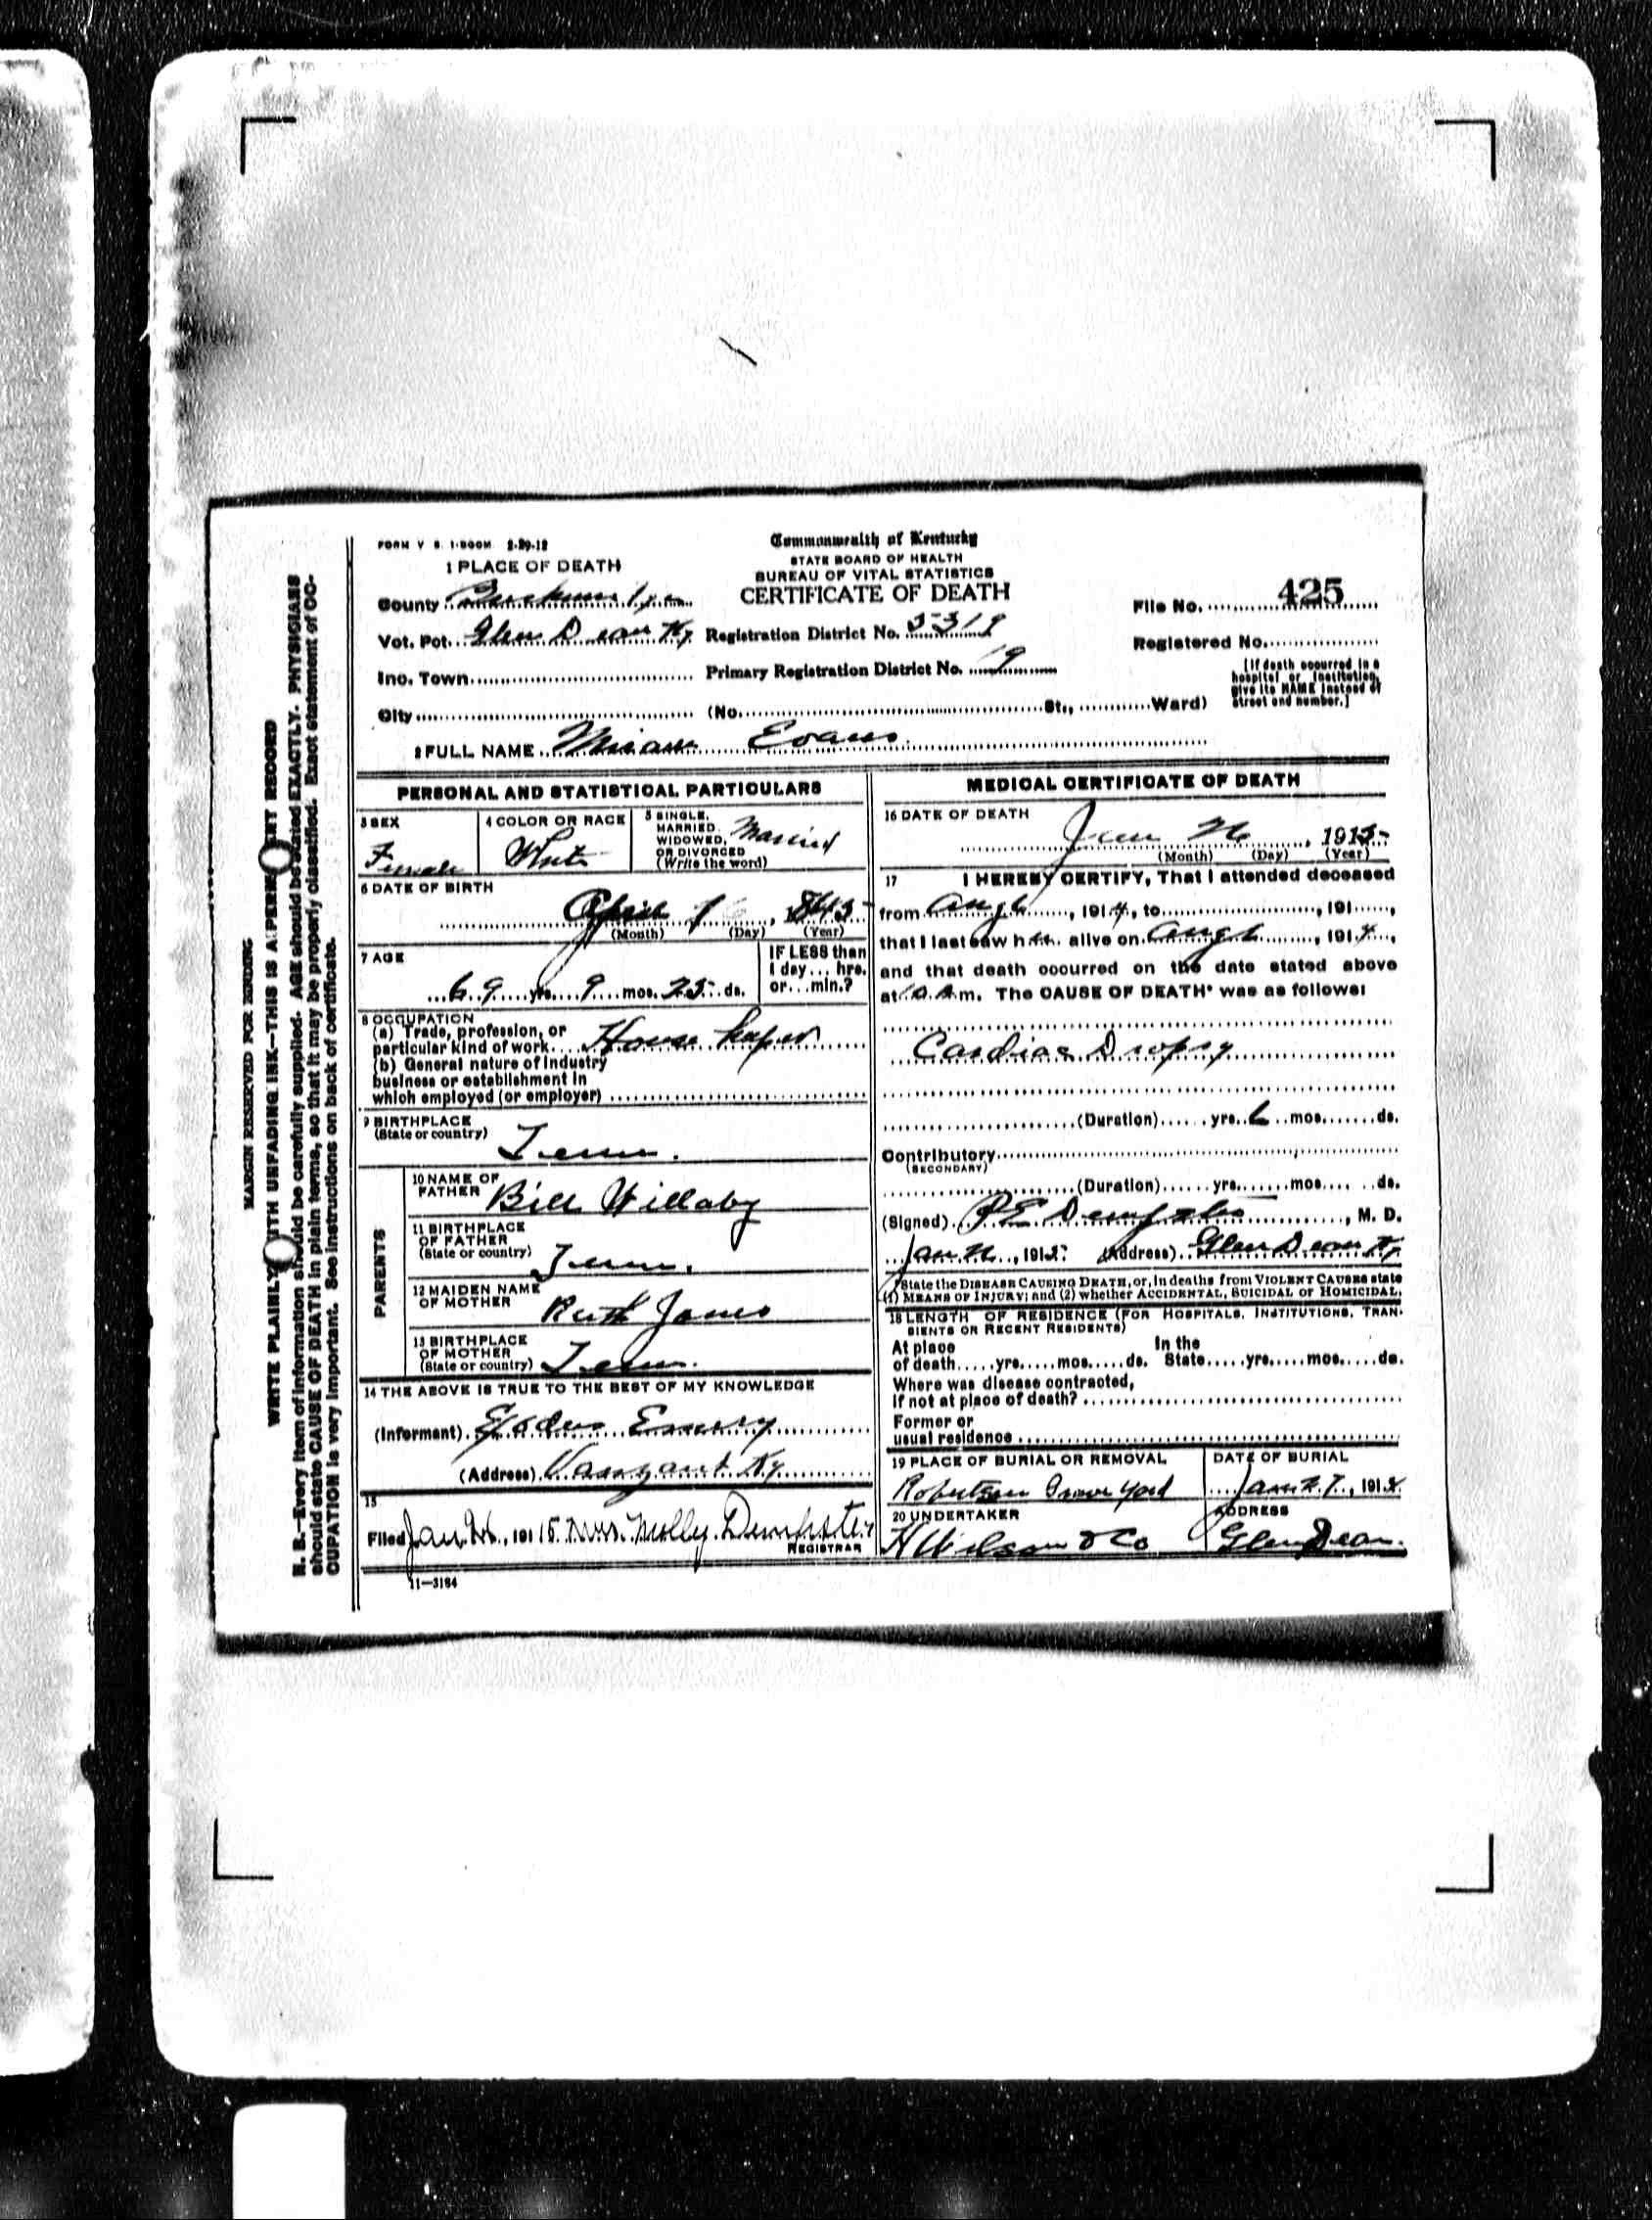 FORM V S. 1-500M 2-29-12
1 PLACE OF DEATH
Commonwealth of Kentucky
STATE BOARD OF HEALTH
BUREAU OF VITAL STATISTICS
CERTIFICATE OF DEATH
County
File No. 425
Vot. Pct. Glen Dean Ky Registration District No. 5319
Registered No.
Inc. Town Primary Registration District No. 19
[If death occurred in a
hospital or institution,
give its NAME instead of
street and number.]
City (No. St., Ward)
2 FULL NAME Evans
PERSONAL AND STATISTICAL PARTICULARS
3 SEX
Female
4 COLOR OR RACE
White
5 SINGLE,
MARRIED,
WIDOWED,
OR DIVORCED
(Write the word)
Married
6 DATE OF BIRTH
April
(Month) (Day) (Year)
7 AGE
69 yrs. 9 mos. 25 ds.
IF LESS than
1 day... hrs.
or...min.?
8 OCCUPATION
(a) Trade, profession, or
particular kind of work House keeper
(b) General nature of industry
business or establishment in
which employed (or employer)
9 BIRTHPLACE
(State or country)
Tenn.
PARENTS
10 NAME OF
FATHER Bill Willaby
11 BIRTHPLACE
OF FATHER
(State or country) Tenn.
12 MAIDEN NAME
OF MOTHER Ruth Jones
13 BIRTHPLACE
OF MOTHER
(State or country) Tenn.
14 THE ABOVE IS TRUE TO THE BEST OF MY KNOWLEDGE
(Informant)
(Address) Vanzant Ky
15
Filed Jan. 26, 191 15. Mrs. Molly Dempster
REGISTRAR
11-3184
MEDICAL CERTIFICATE OF DEATH
16 DATE OF DEATH
26, 1915
(Month) (Day) (Year)
17 I HEREBY CERTIFY, That I attended deceased
from , 1914, to , 191
that I last saw h alive on , 1914,
and that death occurred on the date stated above
at 10 A.m. The CAUSE OF DEATH* was as follows:
Cardiac Dropsy
(Duration) yrs. 6 mos. ds.
Contributory
(SECONDARY)
(Duration) yrs. mos. ds.
(Signed) Dempster, M. D.
Jan , 191 (Address) Glen Dean Ky
*State the DISEASE CAUSING DEATH, or, in deaths from VIOLENT CAUSES state
(1) MEANS OF INJURY; and (2) whether ACCIDENTAL, SUICIDAL or HOMICIDAL.
18 LENGTH OF RESIDENCE (FOR HOSPITALS, INSTITUTIONS, TRAN-
SIENTS OR RECENT RESIDENTS)
At place In the
of death yrs. mos. ds. State yrs. mos. ds.
Where was disease contracted,
if not at place of death?
Former or
usual residence
19 PLACE OF BURIAL OR REMOVAL
Robertson Grave Yard
DATE OF BURIAL
Jan 27, 191
20 UNDERTAKER
H Wilson & Co
ADDRESS
Glen Dean.
MARGIN RESERVED FOR BINDING
WRITE PLAINLY WITH UNFADING INK—THIS IS A PERMANENT RECORD
N. B.—Every item of information should be carefully supplied. AGE should be stated EXACTLY. PHYSICIANS
should state CAUSE OF DEATH in plain terms, so that it may be properly classified. Exact statement of OC-
CUPATION is very important. See instructions on back of certificate.